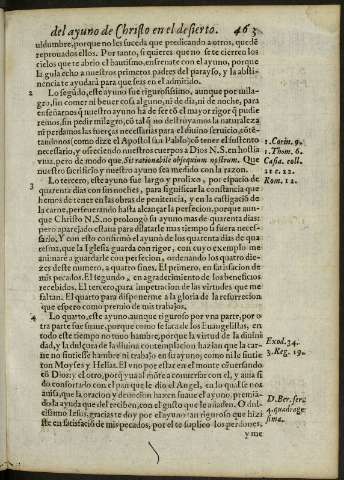 del ayuno de Christo en el desierto. 463
uldumbre, porque no les suceda que predicando a otros, quedē
reprouados ellos. Por tanto, si quieres que no se te cierren los
cielos que te abrio el bautismo, enfrenate con el ayuno, porque
la gula echo a nuestros primeros padres del parayso, y la absti-
nencia te ayudarà para que seas en el admitido.
2 Lo segūdo, este ayuno fue rigurosissimo, aunque por mila-
gro, sin comer ni beuer cosa alguna, ni de dia, ni de noche, para
enseñarnos que nuestro ayuno ha de ser cō el mayor rigor que pudie
remos, sin pedir milagro, cō tal que no destruyamos la naturaleza
ni perdamos las fuerças necessarias para el diuino seruicio, cōtē-
tandonos (como dize el Apostol san Pablo) cō tener el sustento
necessario, y ofreciendo nuestros cuerpos a Dios N.S. en hostia
viua, pero de modo que. Sit rationabile obsequium vestrum. Que
nuestro sacrificio y nuestro ayuno sea medido con la razon.
1. Corin. 9.
1. Thim. 6.
Casia. coll.
21 c. 22.
Rom. 12.
3 Lo tercero, este ayuno fue largo y prolixo, por espacio de
quarenta dias con sus noches, para significar la constancia que
hemos de tener en las obras de penitencia, y en la castigacion de
la carne, perseuerando hasta alcançar la perfecion, porque aun-
que Christo N.S. no prolongò su ayuno mas de quarenta dias:
pero aparejado estaua para dilatarle mas tiempo si fuera neces-
sario. Y con esto confirmò el ayuno de los quarenta dias de qua
resma, que la Iglesia guarda con rigor, con cuyo exemplo me
animarè a guardarle con perfecion, ordenando los quatro die-
zes deste numero, a quatro fines. El primero, en satisfacion de
mis pecados. El segundo, en agradecimiento de los beneficios
recebidos. El tercero, para impetracion de las virtudes que me
faltan. El quarto para disponerme a la gloria de la resurrecion
que espero como premio de mis trabajos.
4 Lo quarto, este ayuno, aunque riguroso por vna parte, por o
tra parte fue suaue, porque como se saca de los Euangelistas, en
todo este tiempo no tuuo hambre, porque la virtud de la diuini
dad, y la dulçura de la diuina contemplacion hazian que la car-
ne no sintiesse hambre ni trabajo en su ayuno, como ni le sintie
ron Moyses y Helias. El vno por estar en el monte cōuersando
cō Dios: y el otro, porque yua al mōte a conuersar con el, y auia si
do confortado con el pan que le dio el Angel, en lo qual se nos
auisa, que la oracion y deuocion hazen suaue el ayuno, premiā-
do la ayuda que del reciben, con el gusto que le añaden. O dul-
cissimo Iesus, gracias te doy por el ayuno tan riguroso que hizi
ste en satisfació de mis pecados, por el te suplico los perdones,
Exod. 34.
3. Reg. 19.
D. Ber. ser.
4. quadrage
sima.
y me